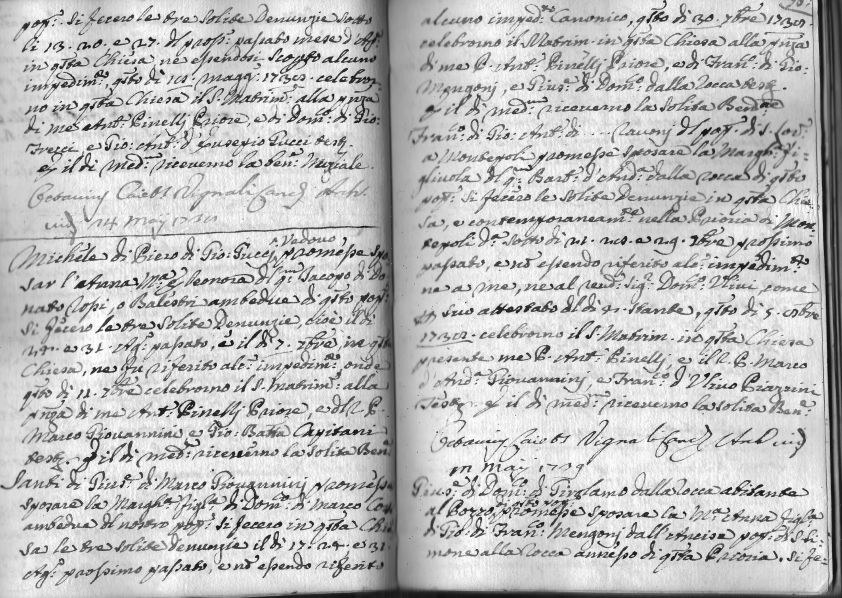 pop.: si fecero le tre solite Denunzie sotto
li 13. 20. e 27. del pross.: passato mese d'
in qsta Chiesa, nè essendosi scopto alcuno
impedim.to, qsto di magg. celebror-
no in qsta Chiesa il S. Matrim.: alla pnza
di me Ant.: Pinellj Priore, e di Dom.co di Gio:
e Gio: Ant.: d' Eusepio Pucci testj.
e il di med.: riceverno la ben.e Nuziale.
Octavius Vignali
24 May
Michele di Piero di Gio: Vedovo, promesse spo-
sar l'etruna M.a Eleonora del qm Jacopo di Do-
nato Topi, o Balestri ambedue di qsto pop.:
Si fecero le tre solite Denunzie, cioè il di
e 31. Ag.: passato, e il di 7. 7bre, in qsta
Chiesa, ne fu riferito alc.: impedim.to onde
qsto di 12. 7bre celebrorno il S. Matrim.: alla
pnza di me Ant.: Pinellj Priore, e del R. P.
Marco Giovannini e Gio: Batta Capitani
testj. e il di med.: riceverno la solita Ben.e
Santi di Giusp.: di Marco Giovanninj promesse
sposare la Margh.ta figl.a di Dom.co di Marco
ambedue di nostro pop.: si fecero in qsta Chie-
sa le tre solite denunzie il di 17. 24. e 31.
Ag.: prossimo passato, e nō essendo riferito
alcuno imped.to Canonico, qsto di 30. 7bre
celebrorno il Matrim. in qsta Chiesa alla pnza
di me P. Ant.: Pinellj Priore, e di Fran.co di Gio:
Mengonj, e Gius.e di Dom.co dalla Rocca testj.
e il di med.: riceverno la solita Ben.e
Fran.co di Gio: Ant.: di .... del pop.: di S. Lor.:
a Montepoli promesse sposare la Margh.ta fi-
gliuola del qm Bart.: d'And.a dalla Rocca di qsto
pop.: si fecero le solite Denunzie in qsta Chie-
sa, e contemporaneam.te nella Prioria di Mon-
tepoli d.a sotto di 21. e 29. 7bre prossimo
passato, e nō essendo riferito alc.: impedim.to
ne a me, ne al Rend: Sig.: Dom.co Vivi, come
suo attestato del di stante, qsto di 5. 8bre
celebrorno il S. Matrim. in qsta Chiesa
presente me P. Ant.: Pinellj, e il R. P. Marco
d'And.a Giovanninj, e Fran.co d'Ulivo Piazzini
Testj. e il di med.: riceverno la solita Ben.e
Octavius Vignali
in May
Gius.e di Dom.co di Girolamo dalla Rocca abitante
al Bozzo, promesse sposare la M.a Anna figl.a
di Gio: di Fran.co Mengonj dall'Ancisa pop.: di S. Si-
mone alla Rocca annesso di qsta Prioria. si fe-